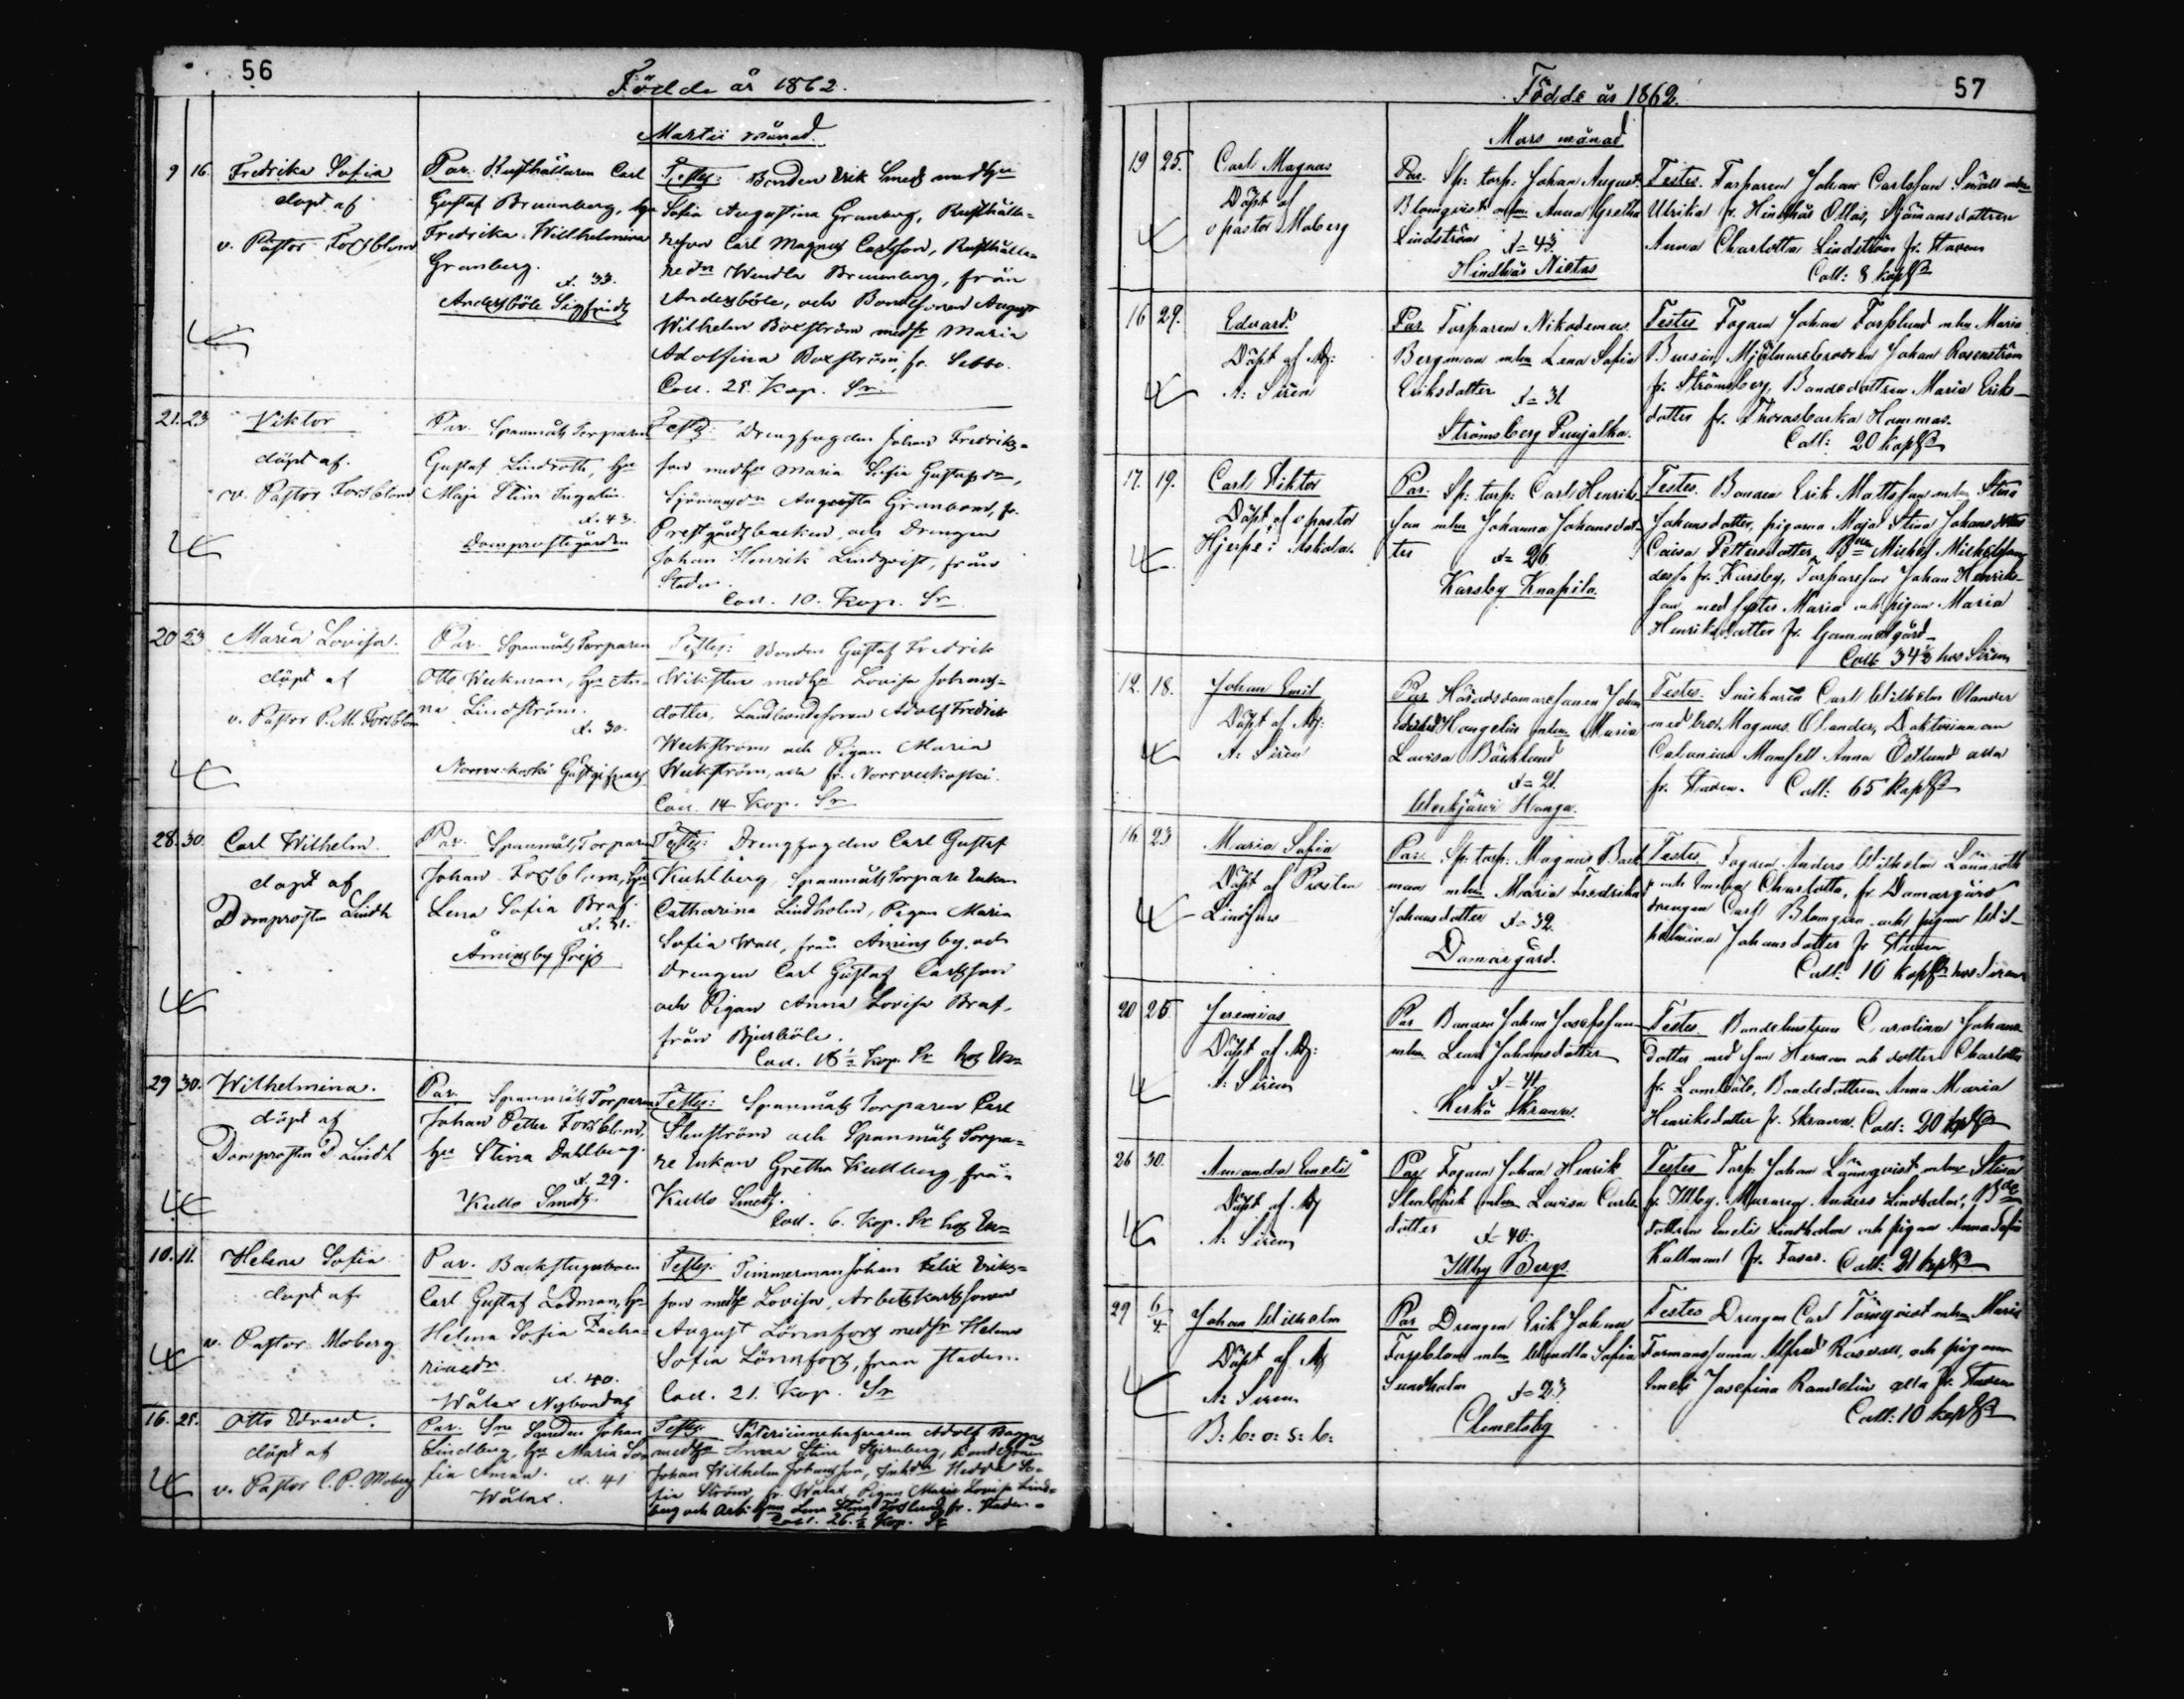 56
Födde år 1862.
Martii månad.
9 16. Fredrika Sofia
döpt af
v. Pastor Forsblom
Par. Rusthållaren Carl
Gustaf Brunnberg, hu
Fredrika Willhelmina
Granberg.
å. 33.
Andersböle Sigfrids
Testes: Bonden Erik Smeds medhu
Sofia Augustina Granberg, Rusthålla-
resson Carl Magnus Carlsson, Rusthålla-
redr Wendla Brunnberg, från
Andersböle, och Bondesonen August
Wilhelm Boxström medsr Maria
Adolfina Boxström, fr. Sebbo.
Coll. 25. Kop. Sr
21. 23 Viktor
döpt af.
v. Pastor Forsblom
Par. Spanmåls Torparen
Gustaf Lindroth, hu
Maja Stina Ingelin.
å. 43.
Domprostgården
Testes: Drengfogden Johan Fredriks-
son medhu Maria Sofia Gustafsdr,
Sjömansdr Augusta Granbom, fr.
Prestgårdsbacken, och Drengen
Johan Henrik Lindqvist, från
Staden.
Coll. 10. Kop. Sr
20 23 Maria Lovisa.
döpt af
v. Pastor P. M. Forsblom
Par. Spanmåls Torparen
Otto Weckman, hu An-
na Lindström.
å. 30.
Norrveckoski Gästgifvars
Testes: Bonden Gustaf Fredrik
Wiksten medhu Lovisa Johans-
dotter, Landbondesonen Adolf Fredrik
Weckström och Pigan Maria
Weckström, alla fr. Norrveckoski.
Coll. 14 Kop. Sr
28. 30. Carl Wilhelm.
döpt af
Domprosten Lindh
Par. Spanmåls Torparen
Johan Forsblom, hu
Lena Sofia Braf.
å. 31.
Åminsby Greis
Testes: Drengfogden Carl Gustaf
Kuhlberg, Spanmåls Torpare Enkan
Catharina Lindholm, Pigan Maria
Sofia Wall, från Åminsby, och
Drengen Carl Gustaf Carlsson
och Pigan Anna Lovisa Braf,
från Bjurböle.
Coll. 16½ Kop. Sr hos
29 30. Wilhelmina.
döpt af
Domprosten Lindh
Par. Spanmåls Torparen
Johan Petter Forsblom,
hu Stina Dahlberg.
å. 29.
Kullo Smeds.
Testes: Spanmåls Torparen Carl
Stenström och Spanmåls Torpa-
re Enkan Gretha Kullberg, från
Kullo Smeds.
Coll. 6. Kop. Sr hos
10. 11. Helena Sofia
döpt af
v. Pastor Moberg
Par. Backstugaboen
Carl Gustaf Lödman, hu
Helena Sofia Zacha-
riaedr.
å. 40.
Wålax Nybondas
Testes: Timmerman Johan Felix Eriks-
son medhu Lovisa, Arbetskarlssonen
August Lönnfors medsr Helena
Sofia Lönnfors, från staden.
Coll. 21. Kop. Sr
16. 25. Otto Edvard.
döpt af
v. Pastor C. P. Moberg
Par. Johan
Lindberg, hu Maria So-
fia Åman. å. 41
Wålax.
Testes: Adolf
medhu Anna Stina Stjernberg, Bondesonen
Johan Wilhelm Johansson, Hedda So-
fia Ström, fr. Wålax, Pigan Maria Lovisa Lind-
berg och Arb. hun Lena Stina Forslund, fr. staden.
Coll. 26½ Kop. Sr
57
Födde år 1862
Mars månad
19 25. Carl Magnus
Döpt af
v pastor Moberg
Par. Sp: torp: Johan August
Blomqvist mhu Anna Gretha
Lindström å= 43
Hindhås Nietas
Testes. Torparen Johan Carlsson Småll mhu
Ulrika fr. Hindhås Ollas, Sjömansdottren
Anna Charlotta Lindström fr. Staden
Coll: 8 kop Sr
16 29. Edvard
Döpt af Adj:
A: Sirén
Par Torparen Nikodemus
Bergman mhu Lena Sofia
Eriksdotter å= 31
Strömsberg Punjalka.
Testes Fogden Johan Forslund mhu Maria
Mjölnarebrodren Johan Rosenström
fr. Strömsberg, Bondedottren Maria Eriks-
dotter fr. Thorasbacka Hommas.
Coll: 20 kop Sr
17. 19. Carl Viktor
Döpt af v pastor
Hjerpe i Askola.
Par. Sp: torp: Carl Henriks-
son mhu Johanna Johansdot-
ter å= 26
Karsby Knapila.
Testes. Bonden Erik Mattsson mhu Stina
Johansdotter, pigorna Maja Stina Johansdotter
Caisa Pettersdotter, Michel Michelsson
dessa fr. Karsby, Torparsson Johan Henriks-
son med syster Maria och pigan Maria
Henriksdotter fr. Gammelgård.
Coll: 34½ hos Sirén
12. 18. Johan Emil
Döpt af Adj:
A: Sirén
Par Häradsdomaresonen Johan
Edvard Hongelin mhu Maria
Lovisa Bäcklund
å= 21
Werkjärvi Honga.
Testes. Snickaren Carl Wilhelm Olander
med bror Magnus Olander, Doktorinnan
Calonius Mamsell Anna Östlund alla
fr. Staden. Coll: 65 Kop Sr
16. 23 Maria Sofia
Döpt af Prosten
Lindfors
Par. Sp: torp: Magnus Back-
man mhu Maria Fredrika
Johansdotter å= 32
Domargård.
Testes Fogden Anders Wilhelm Lönnroth
och Charlotta, fr. Domargård
drengen Carl Blomgren och pigan Wil-
helmina Johansdotter fr Staden
Coll: 10 kop Sr hos Sirén
20 25 Jeremias
Döpt af Adj:
A: Sirén
Par Bonden Johan Josefsson
mhu Lena Johansdotter
å= 41
Kerkö Skrana.
Testes. Bondehustrun Carolina Johans-
dotter med son Herman och dotter Charlotta
fr. Bondedottren Anna Maria
Henriksdotter fr. Skrana. Coll: 20 kop Sr
26 30. Amanda Emeli
Döpt af Adj
A: Sirén
Par Fogden Johan Henrik
mhu Lovisa Carls-
dotter å= 40.
Illby Bergs
Testes Torp: Johan Lönnqvist mhu Stina
fr. Illby. Anders Lindholm,
dottren Emeli Lindholm och pigan Anna Sofia
Kullman fr. Coll: 21 kop Sr
29 6/4 Johan Wilhelm
Döpt af Adj
A: Sirén
B: b: o: s: b:
Par Drengen Erik Johan
Forsblom mhu Wendla Sofia
Sundholm å= 23
Clemetsby
Testes Drengen Carl Törnqvist mhu Maria
Formanssonen Alfred Rosvall, och pigan
Emeli Josefina Randelin alla fr. Staden
Coll: 10 kop Sr